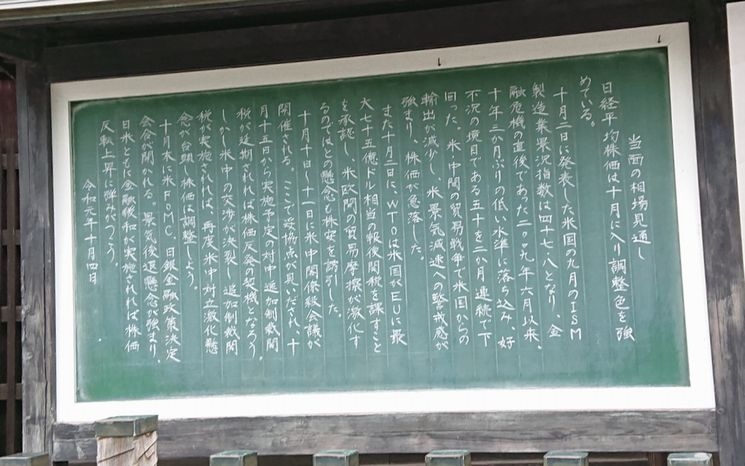 当面の相場見通し
日経平均株価は十月に入り調整色を強
めている。
十月一日に発表した米国の九月のISM
製造業景況指数は四十七・八となり、金
融危機の直後であった二〇〇九年六月以来、
十年三か月ぶりの低い水準に落ち込み、好
不況の境目である五十を二か月連続で下
回った。米中間の貿易戦争で米国からの
輸出が減少し、米景気減速への警戒感が
強まり、株価が急落した。
また十月二日に、WTOは米国がEUに最
大七十五億ドル相当の報復関税を課すこと
を承認し、米欧間の貿易摩擦が激化す
るのではとの懸念も株安を誘引した。
十月十日〜十一日に米中閣僚級会議が
開催される。ここで妥協点が見いだされ、十
月十五日から実施予定の対中追加制裁関
税が延期されれば株価反発の契機となろう。
しかし米中の交渉が決裂し追加制裁関
税が実施されれば、再度米中対立激化懸
念が台頭し株価は調整しよう。
十月末に米FOMC、日銀金融政策決定
会合が開かれる。景気後退懸念が強まり、
日米ともに金融緩和が実施されれば株価
反転上昇に弾みがつこう。
令和元年十月四日